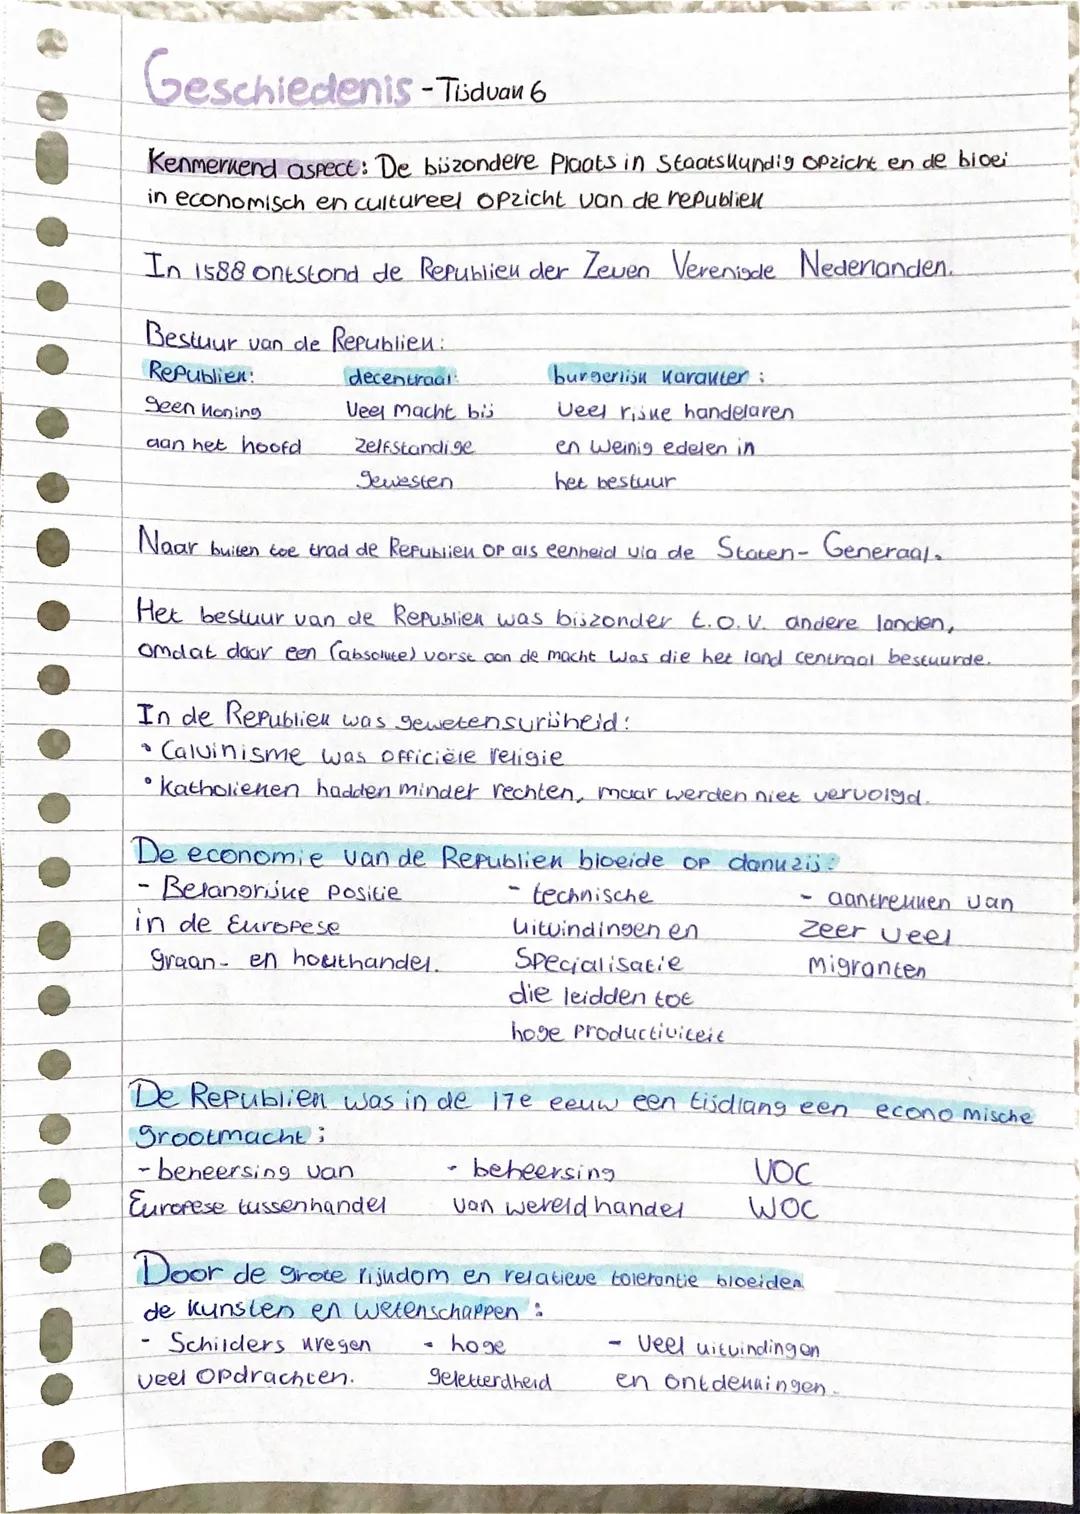 Geschiedenis - Tijdvak 6
Kenmerkend aspect: De bijzondere Plaats in Staatskundig opzicht en de bloei
in economisch en cultureel opzicht van de republiek
In 1588 ontstond de Republiek der Zeven Verenigde Nederlanden.
Bestuur van de Republiek:
Republiek: decentraal: burgerlijk karakter:
geen koning Veel macht bij Veel rijke handelaren
aan het hoofd zelfstandige en weinig edelen in
gewesten het bestuur
Naar buiten toe trad de Republiek op als eenheid via de Staten-Generaal.
Het bestuur van de Republiek was bijzonder t.o.v. andere landen,
omdat daar een (absolute) vorst aan de macht was die het land centraal bestuurde.
In de Republiek was gewetensvrijheid:
• Calvinisme was officiële religie
• Katholieken hadden minder rechten, maar werden niet vervolgd.
De economie van de Republiek bloeide op dankzij:
- Belangrijke positie - technische - aantrekken van
in de Europese uitvindingen en zeer veel
graan- en houthandel. Specialisatie migranten
die leidden tot
hoge productiviteit
De Republiek was in de 17e eeuw een tijdlang een economische
grootmacht:
- beheersing van - beheersing VOC
Europese tussenhandel van wereldhandel WOC
Door de grote rijkdom en relatieve tolerantie bloeiden
de kunsten en wetenschappen:
- Schilders kregen - hoge - Veel uitvindingen
veel opdrachten. geletterdheid en ontdekkingen.